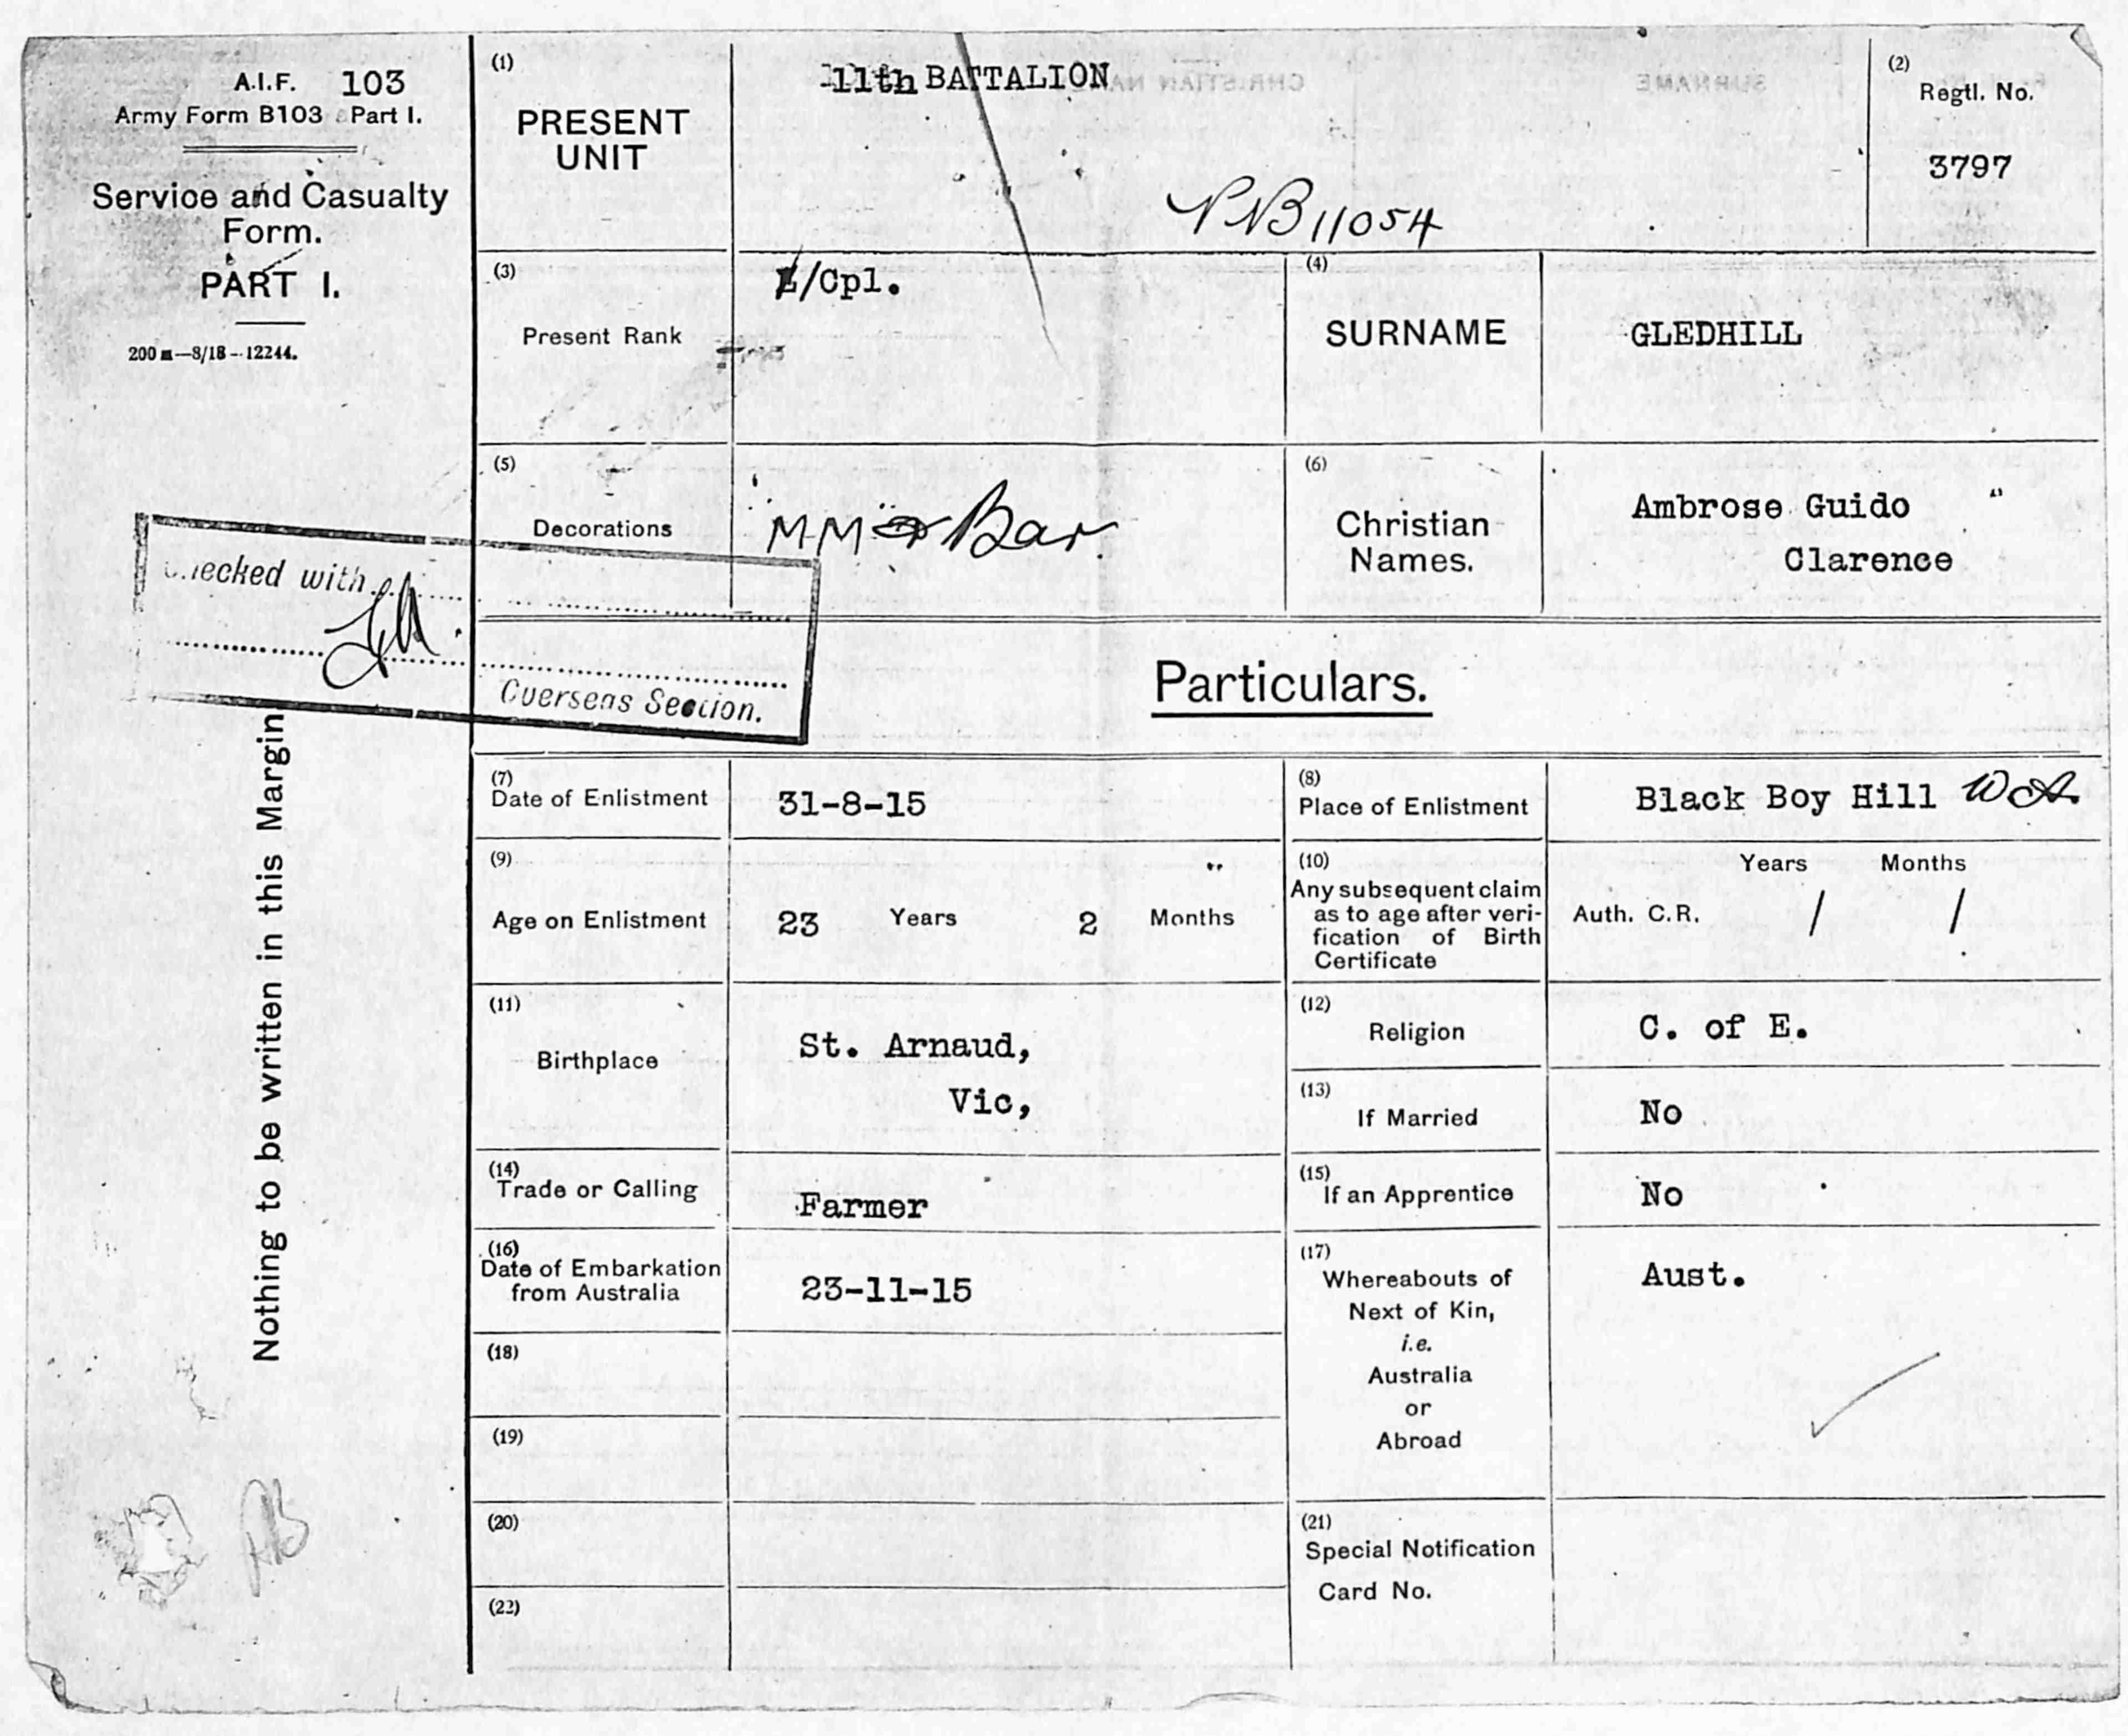 A.I.F. 103
Army Form B103 Part I.
Service and Casualty
Form.
PART I.
200 m—8/18—12244.
(1)
PRESENT
UNIT
11th BATTALION
CHRISTIAN NA
SURNAME
(2)
Regtl. No.
3797
11054
(3)
Present Rank
L/Cpl.
(4)
SURNAME
GLEDHILL
(5)
Decorations
MM & Bar
(6)
Christian
Names.
Ambrose Guido
Clarence
Checked with
Overseas Section.
Particulars.
Nothing to be written in this Margin
(7)
Date of Enlistment
31-8-15
(8)
Place of Enlistment
Black Boy Hill W A.
(9)
Age on Enlistment
23 Years 2 Months
(10)
Any subsequent claim
as to age after veri-
fication of Birth
Certificate
Years Months
Auth. C.R. / /
(11)
Birthplace
St. Arnaud,
Vic,
(12)
Religion
C. of E.
(13)
If Married
No
(14)
Trade or Calling
Farmer
(15)
If an Apprentice
No
(16)
Date of Embarkation
from Australia
23-11-15
(17)
Whereabouts of
Next of Kin,
i.e.
Australia
or
Abroad
Aust.
(18)
(19)
(20)
(21)
Special Notification
Card No.
(22)